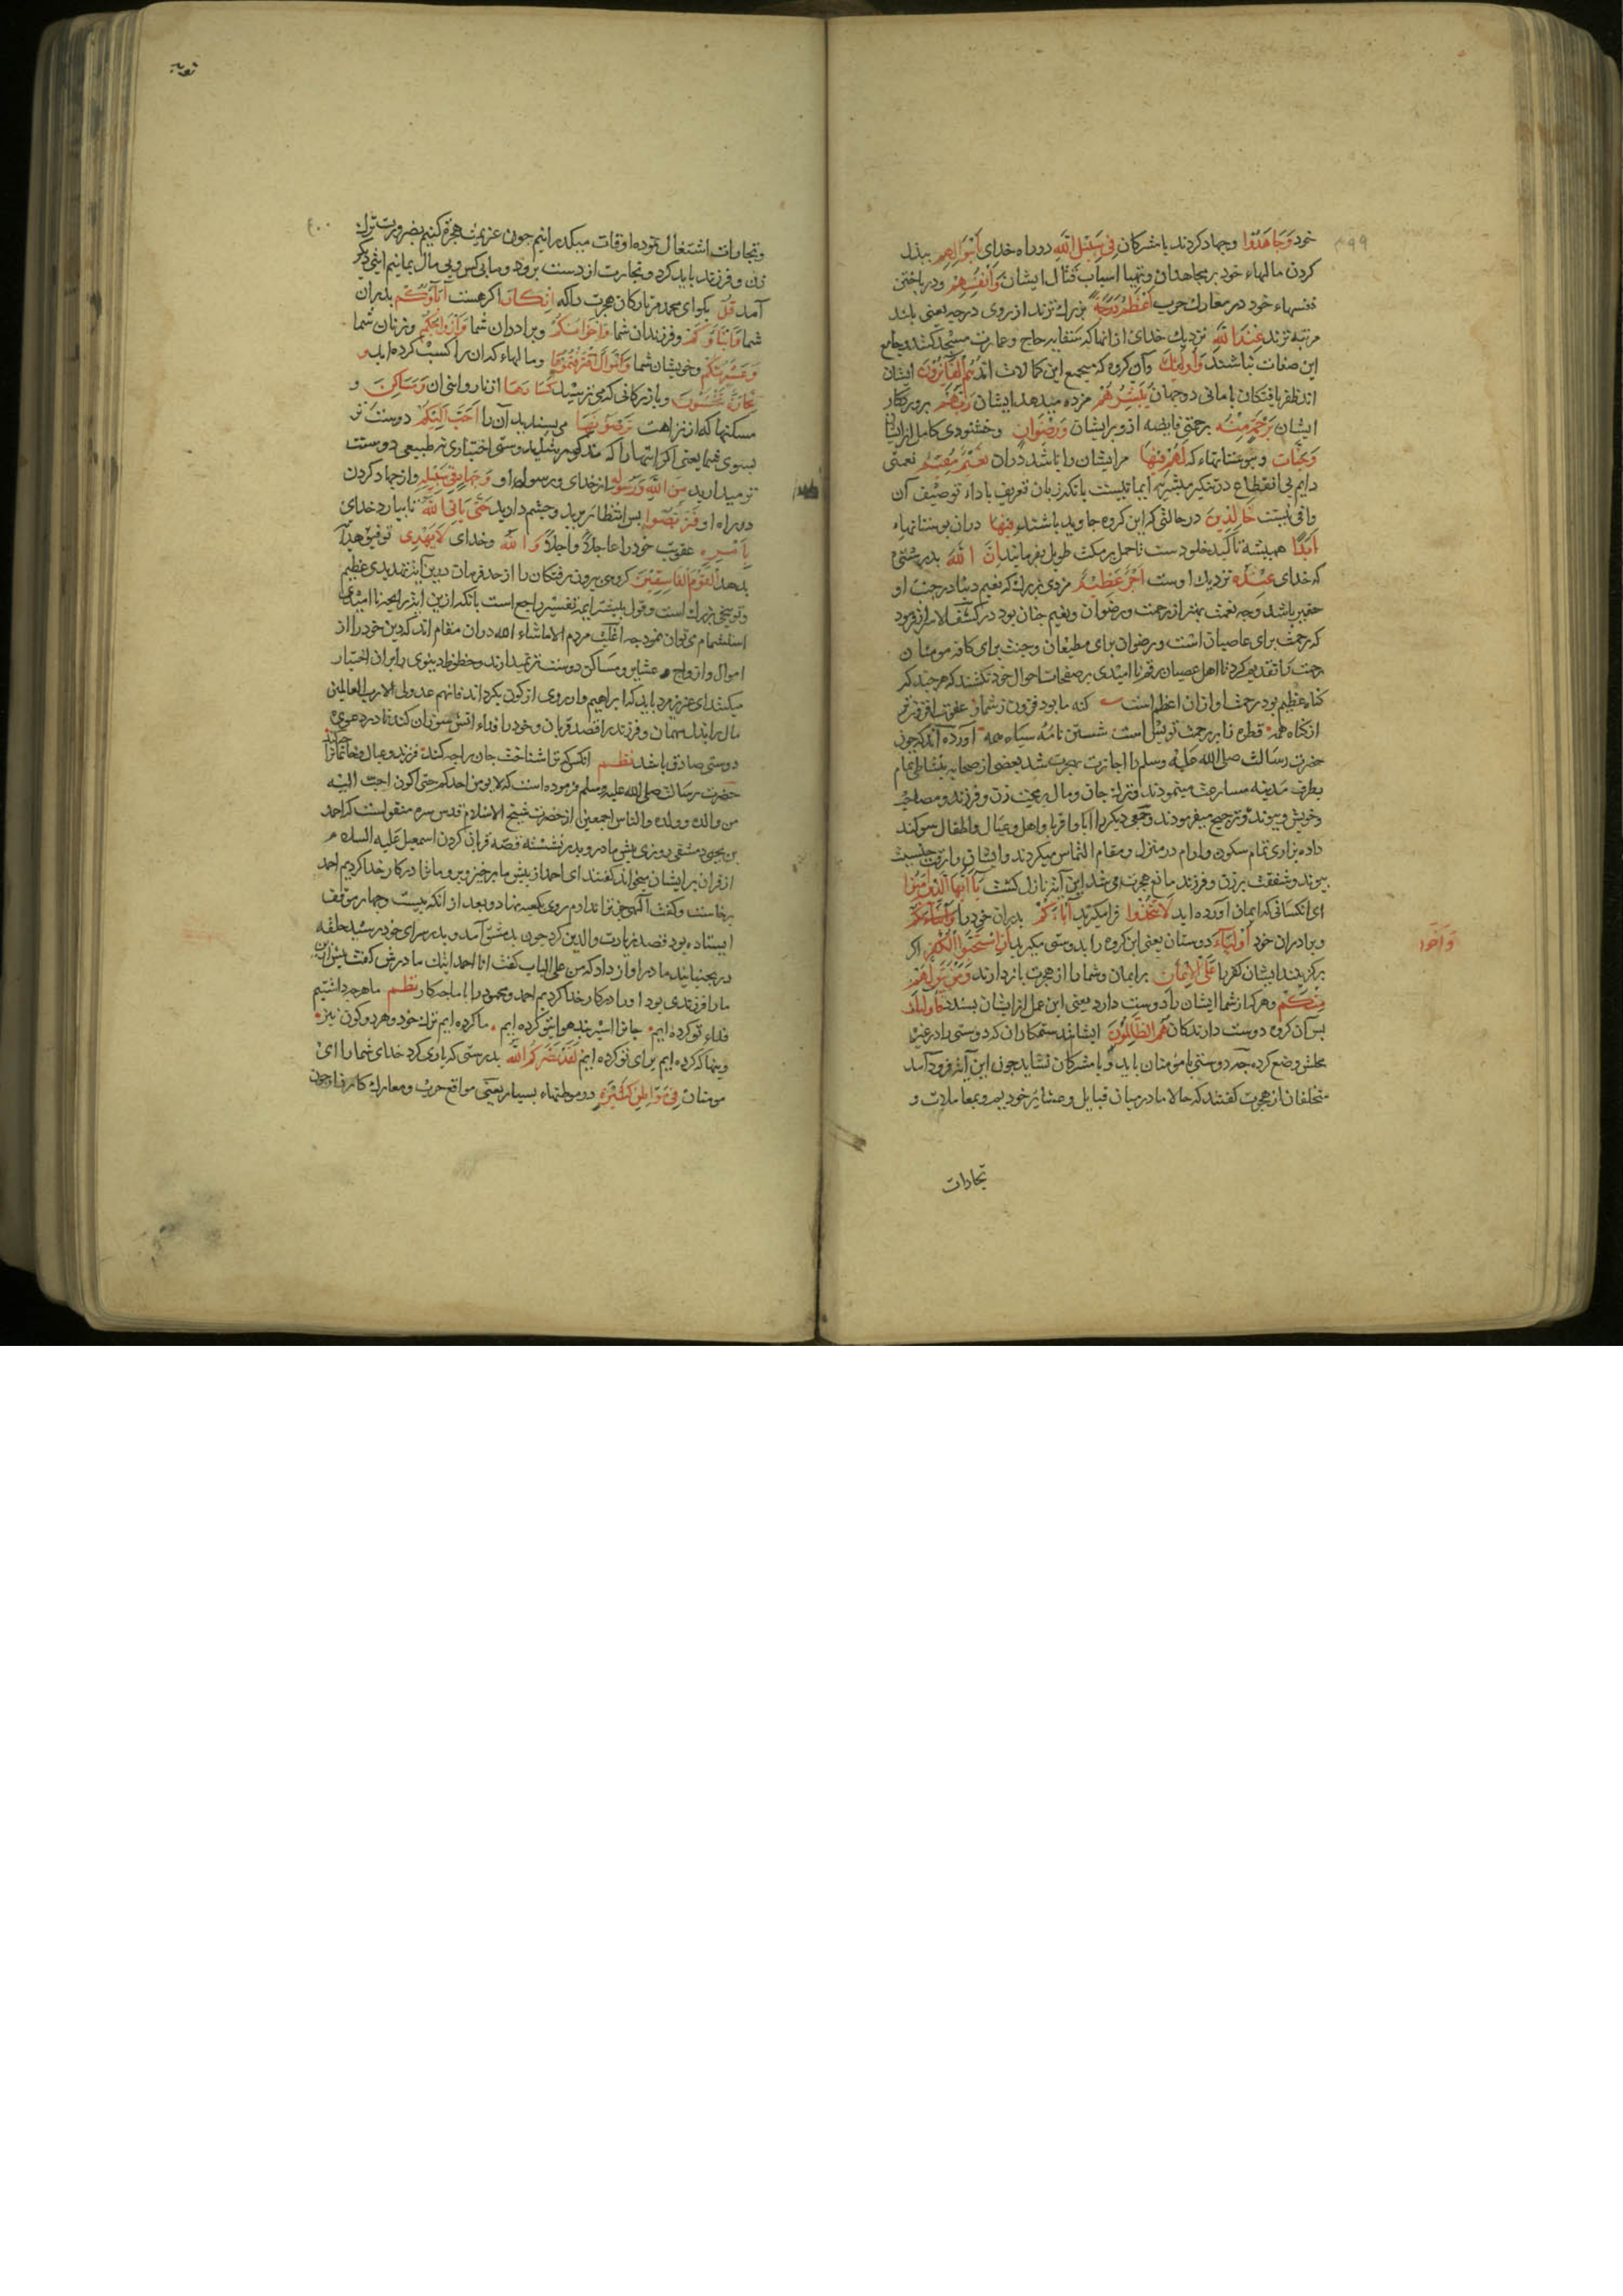 ۳۹۹
خود وَجَاهَدُوا وجهاد کردند با مشرکان فِي سَبِيْلِ اللَّهِ در راه خدای بِأَمْوَالِهِمْ ببذل
کردن مالهاء خود بر مجاهدان و تهیا اسباب قتال ایشان وَأَنْفُسِهِمْ و در باختن
نفسهاء خود در معارک حرب أَعْظَمُ دَرَجَةً بزرك ترند از روی درجه یعنی بلند
مرتبه ترند عِنْدَ اللَّهِ نزدیك خدای از انها که سقایه حاج و عمارت مسجد کنند و جامع
این صفات نباشند وَأُولَئِكَ وآن کروه که مجمع این کمالات اند هُمُ الْفَائِزُونَ ایشان
اند ظفر یافتکان بامانی دوجهان يُبَشِّرُهُمْ مژده میدهد ایشان رَبُّهُمْ پروردکار
ایشان بِرَحْمَةٍ مِنْهُ برحمتی فایضه ازو بر ایشان وَرِضْوَانٍ و خشنودی کامل از ایشان
وَجَنَّاتٍ و بوستانهاء که لَهُمْ فِيهَا مر ایشان را باشد دران نَعِيْمٌ مُقِيْمٌ نعمتی
دایم بی انقطاع در تنکیر مبشر به ایماییست بانکه زبان تعریف باداء توصیف آن
وافی نیست خَالِدِينَ در حالتی که این کروه جاوید باشند فِيْهَا دران بوستانهاء
أَبَدًا همیشه تاکید خلودست تا حمل بر مکث طویل نفرمایند إِنَّ اللَّهَ بدرستی
که خدای عِنْدَهُ نزدیك اوست أَجْرٌ عَظِيْمٌ مزدی بزرك که نعیم دنیا در جنب او
حقیر باشد و چه نعمت بهتر از رحمت و رضوان و نعیم جنان بود در کشف الاسرار فرمود
که رحمت برای عاصیان است و رضوان برای مطیعان و جنت برای کافه مومنان
رحمت را تقدیم کرد تا اهل عصیان رقم ناامیدی بر صفحات احوال خود نکشند که هر چند که
کناه عظیم بود رحمت او ازان اعظم است کنه ما بود فزون ز شمار عفوت افزونتر
از کناه همه قطره ز اب رحمت تو بس است شستن نامه سیاه همه آورده اند که چون
حضرت رسالت صلی الله علیه وسلم را اجازت هجرت شد بعضی از صحابه بنشاط تمام
بطرف مدینه مسارعت مینمودند و ترك جان و مال بر محبت زن و فرزند و مصاحبت
خویش و پیوند ترجیح میفرمودند و جمعی دیکر را آبا و اقربا و اهل و عیال و اطفال سوکند
داده بزاری تمام سکون و ارام در منزل و مقام التماس میکردند و ایشان را رقت جنسیت
پیوند و شفقت بر زن و فرزند مانع هجرت می شد این آیت نازل کشت يَا أَيُّهَا الَّذِينَ آمَنُوا
ای انکسانی که ایمان آورده اید لَا تَتَّخِذُوا فرا مکیرید آبَاءَكُمْ پدران خود را
وَإِخْوَا
و برادران خود أَوْلِيَاءَ دوستان یعنی این کروه را بدوستی مکیرید إِنِ اسْتَحَبُّوا الْكُفْرَ اکر
برکزیدند ایشان کفر را عَلَى الْإِيْمَانِ بر ایمان و شما را از هجرت باز دارند وَمَنْ يَتَوَلَّهُمْ
مِنْكُمْ و هرکه از شما ایشان را دوست دارد یعنی این عمل از ایشان پسندد فَأُولَئِكَ
پس آن کروه دوست دارندکان هُمُ الظَّالِمُونَ ایشانند ستمکاران که دوستی را در غیر
محلش وضع کرده چه دوستی با مومنان باید و با مشرکان نشاید چون این آیت فرود آمد
متخلفان از هجرت کفتند که حالا ما در میان قبایل و عشایر خودیم و بمعاملات و
تجارات
توبه
۴۰۰
وتجارات اشتغال نموده اوقات میکذرانیم چون عزیمت هجرة کنیم بضرورت ترك
زن و فرزند باید کرد و تجارت از دست برود و ما بی کس و بی مال بمانیم آیتی دیکر
آمد قُلْ بکو ای محمد مر تارکان هجرت را که إِنْ كَانَ اکر هست آبَاؤُكُمْ پدران
شما وَأَبْنَاؤُكُمْ و فرزندان شما وَإِخْوَانُكُمْ و برادران شما وَأَزْوَاجُكُمْ و زنان شما
وَعَشِيْرَتُكُمْ و خویشان شما وَأَمْوَالٌ اقْتَرَفْتُمُوهَا و مالهاء که ان را کسب کرده اید و
تِجَارَةٌ تَخْشَوْنَ و بازرکانی که می ترسید كَسَادَهَا از ناروایی ان وَمَسَاكِنُ و
مسکنها که از نزاهت تَرْضَوْنَهَا می پسندید آن را أَحَبَّ إِلَيْكُمْ دوست تر
بسوی شما یعنی اکر اینها را که مذکور شد بدوستی اختیاری نه طبیعی دوست
تر میدارید مِنَ اللَّهِ وَرَسُولِهِ از خدای و رسول او وَجِهَادٍ فِي سَبِيْلِهِ و از جهاد کردن
در راه او فَتَرَبَّصُوا پس انتظار برید و چشم دارید حَتَّى يَأْتِيَ اللَّهُ تا بیارد خدای
بِأَمْرِهِ عقوبت خود را عاجلاً و آجلاً وَاللَّهُ و خدای لَا يَهْدِي توفیق هدایت
بدهد الْقَوْمَ الْفَاسِقِيْنَ کروهی بیرون رفتکان را از حد فرمان درین آیت تهدیدی عظیم
و توبیخی بزرك است
اموال و ازواج و عشایر و مساکن دوست تر نمیدارند و حظوظ دینوی را بران اختیار
میکنند ای عزیز مرد باید که ابراهیم وار روی از کون بکرداند فانهم عدو لی الا رب العالمین
مال را بذل مهمان و فرزند را قصد قربان و خود را فداء اتش سوزان کند تا در دعوی
دوستی صادق باشد نظم آنکس که ترا شناخت جان را چه کند فرزند و عیال و خانمان را
چه کند
حضرت رسالت صلی الله علیه وسلم فرموده است که لا یومن احدکم حتی اکون احب الیه
من والده و ولده والناس اجمعین از حضرت شیخ الاسلام قدس سره منقولست که احمد
بن یحیی دمشقی روزی پیش مادر و پدر نشسته قصه قربان کردن اسمعیل علیه السلام
از قران بر ایشان میخواند کفتند ای احمد از پیش ما برخیز و برو ما ترا در کار خدا کردیم احمد
برخاست و کفت الهی جز ترا ندارم روی بکعبه نهاد و بعد از انکه بیست و چهار موقف
ایستاده بود قصد زیارت والدین کرد چون بدمشق آمد و بدر سرای خود رسید حلقه
در بجنبانید مادر آواز داد که من علی الباب کفت انا احمد ابنك مادرش کفت پیش ازین
ما را فرزندی بود او را در کار خدا کردیم احمد و محمود را با ما چه کار نظم ما هرچه داشتیم
فداء تو کرده ایم جانرا اسیر بند هوای تو کرده ایم ما کرده ایم ترك خود و هر دو کون نیز
وینها که کرده ایم برای تو کرده ایم لَقَدْ نَصَرَكُمُ اللَّهُ بدرستی که یاری کرد خدای شما را ای
مومنان فِي مَوَاطِنَ كَثِيْرَةٍ در موطنهاء بسیار یعنی مواقع حرب و معارك کارزار چون